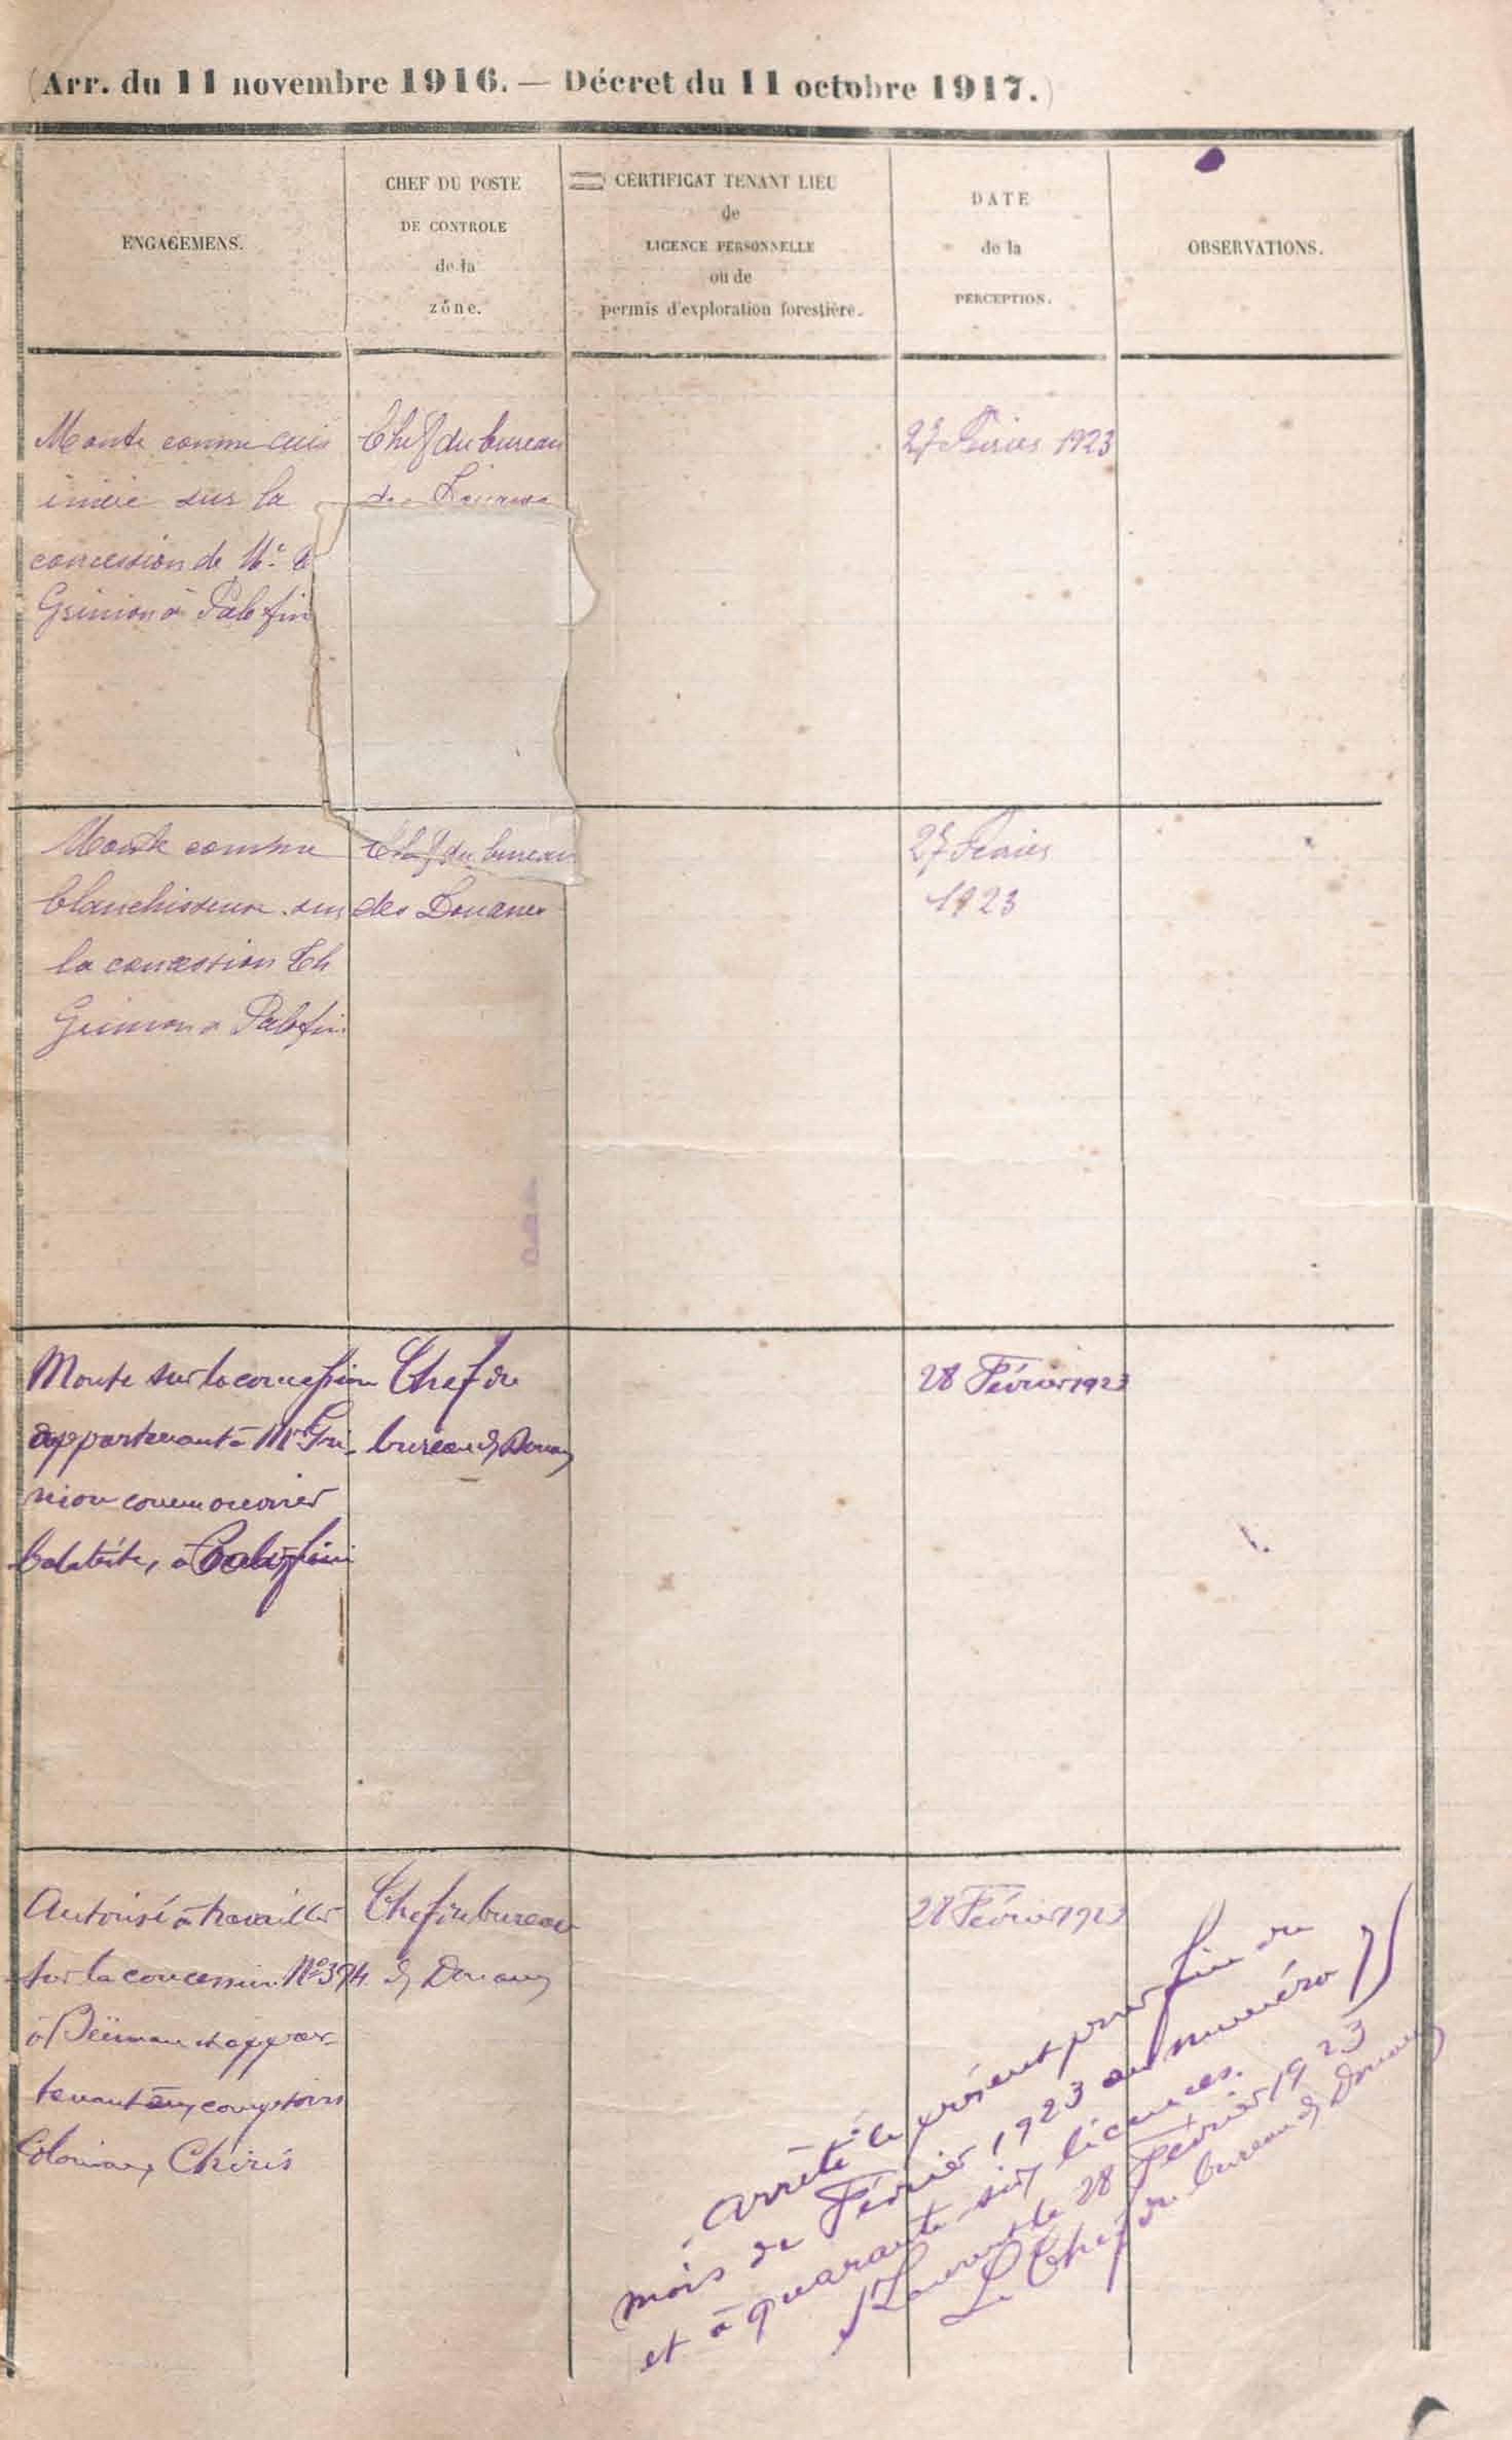 (Arr. du 11 novembre 1916. — Décret du 11 octobre 1917.)
ENGAGEMENS.
CHEF DU POSTE
DE CONTROLE
de la
zône.
CERTIFICAT TENANT LIEU
de
LICENCE PERSONNELLE
ou de
permis d'exploration forestière.
DATE
de la
PERCEPTION.
OBSERVATIONS.
Monte comme cuisi
sur la
concession de
Grinion à Palofini
Chef du bureau
des Douanes
27 Février 1923
Monte comme
blanchisseuse sur
la concession Th
Grinion à Palofini
Chef du bureau
des Douanes
27 Février
1923
Monte sur la concession
appartenant à Mr Gri-
nion comme ouvrier
balatiste, à Palofini
Chef du
bureau des Douanes
28 Février 1923
Autorisé à travailler
sur la concession No 394
à et appar-
tenant aux comptoirs
Coloniaux Chiris
Chef du bureau
des Douanes
28 Février 1923
Arrêté le présent pour fin du
mois de Février 1923 au numéro
et à quarante six licences.
St Laurent le 28 Février 1923
Le Chef du bureau des Douanes